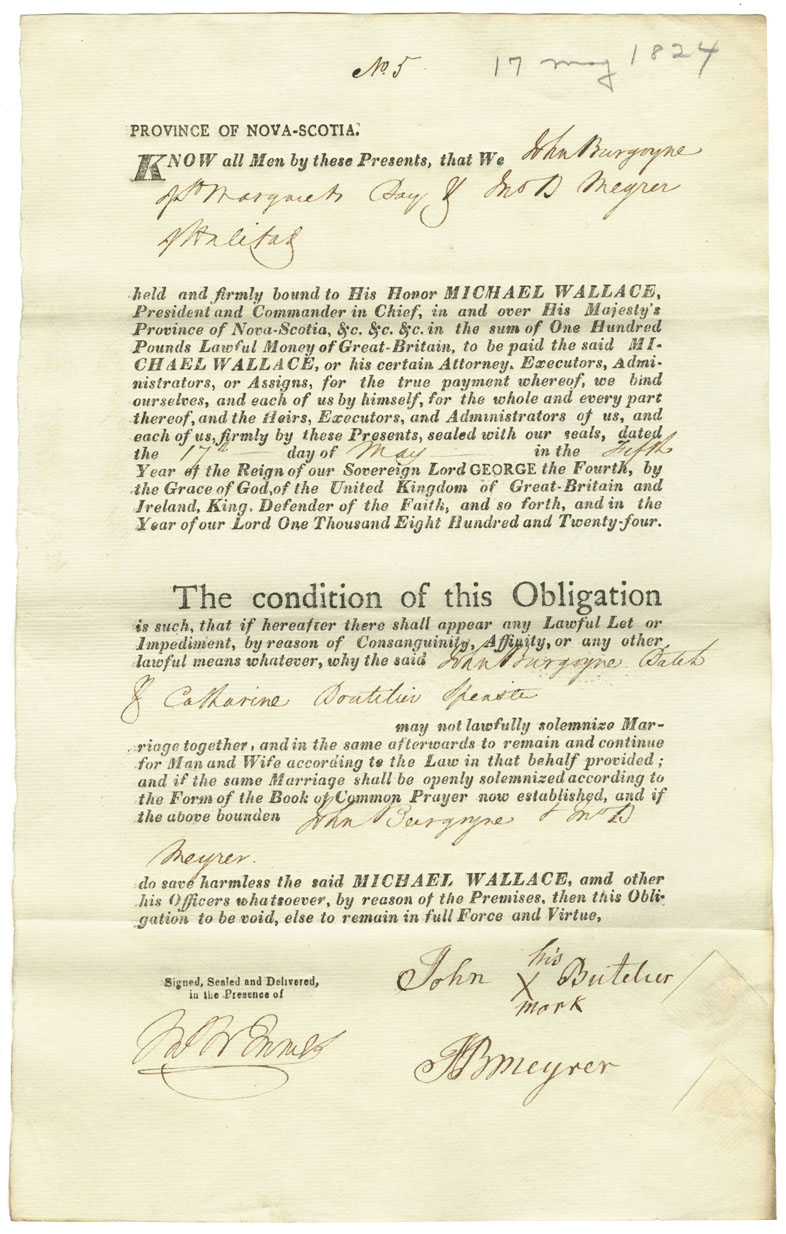 No. 5
17 may 1824
PROVINCE OF NOVA-SCOTIA.
KNOW all Men by these Presents, that We John Burgoyne
of St Margarets Bay & Jno B Meyrer
of Halifax
held and firmly bound to His Honor MICHAEL WALLACE,
President and Commander in Chief, in and over His Majesty's
Province of Nova-Scotia, &c. &c. &c. in the sum of One Hundred
Pounds Lawful Money of Great-Britain, to be paid the said MI-
CHAEL WALLACE, or his certain Attorney. Executors, Admi-
nistrators, or Assigns, for the true payment whereof, we bind
ourselves, and each of us by himself, for the whole and every part
thereof, and the Heirs, Executors, and Administrators of us, and
each of us, firmly by these Presents, sealed with our seals, dated
the 17th day of May in the Fifth
Year of the Reign of our Sovereign Lord GEORGE the Fourth, by
the Grace of God, of the United Kingdom of Great-Britain and
Ireland, King, Defender of the Faith, and so forth, and in the
Year of our Lord One Thousand Eight Hundred and Twenty-four.
The condition of this Obligation
is such, that if hereafter there shall appear any Lawful Let or
Impediment, by reason of Consanguinity, Affinity, or any other
lawful means whatever, why the said John Burgoyne Batch
& Catharine Boutilier Spinster
may not lawfully solemnize Mar-
riage together, and in the same afterwards to remain and continue
for Man and Wife according to the Law in that behalf provided;
and if the same Marriage shall be openly solemnized according to
the Form of the Book of Common Prayer now established, and if
the above bounden John Burgoyne & Jno B
Meyrer.
do save harmless the said MICHAEL WALLACE, amd other
his Officers whatsoever, by reason of the Premises, then this Obli-
gation to be void, else to remain in full Force and Virtue,
Signed, Sealed and Delivered,
in the Presence of
his
John X Butcher
mark
JB Meyrer